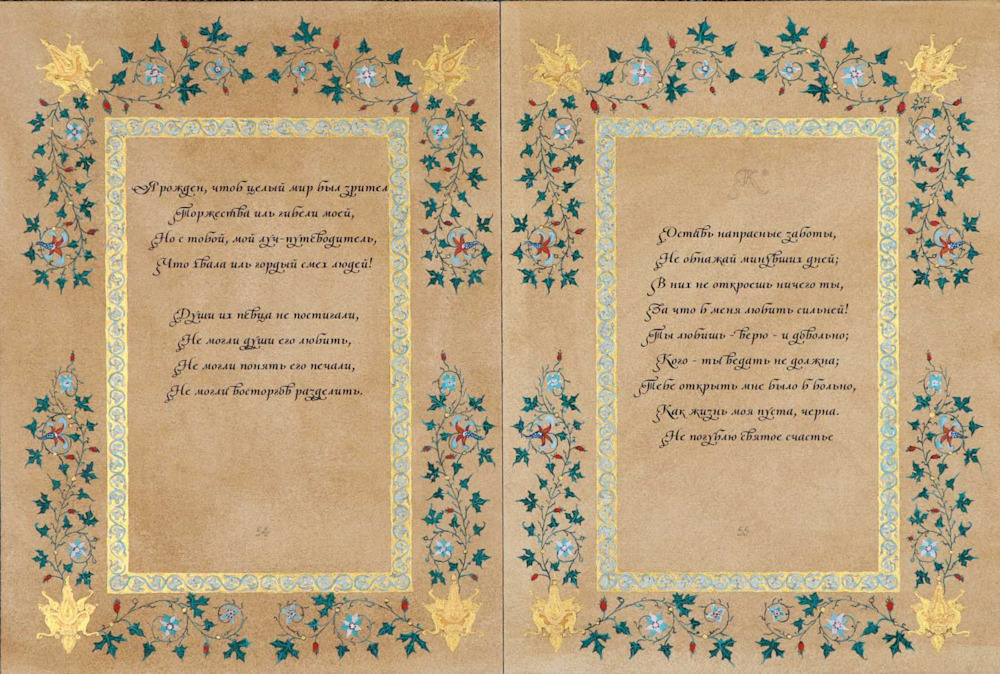 Я рожден, чтоб целый мир был зрител
Торжества иль гибели моей,
Но с тобой, мой луч-путеводитель,
Что хвала иль гордый смех людей!
Души их певца не постигали,
Не могли души его любить,
Не могли понять его печали,
Не могли восторгов разделить.
54
К*
Оставь напрасные заботы,
Не обнажай минувших дней;
В них не откроешь ничего ты,
За что б меня любить сильней!
Ты любишь - верю - и довольно;
Кого - ты ведать не должна;
Тебе открыть мне было б больно,
Как жизнь моя пуста, черна.
Не погублю святое счастье
55